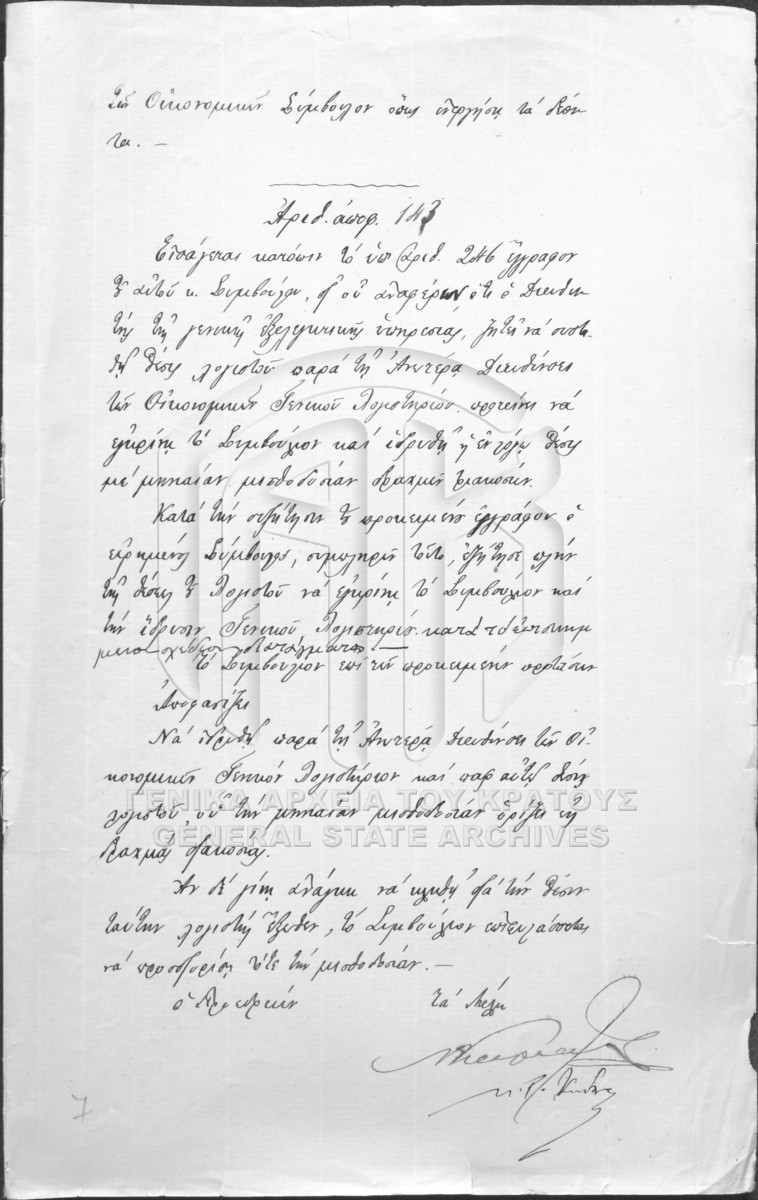 τὸν Οἰκονομικὸν Σύμβουλον ὅπως ἐνεργήση τὰ δέον
τα. —
Ἀριθ. ἀποφ. 143
Εἰσάγεται κατόπιν τὸ ὑπ' ἀριθ. 246 ἔγγραφον
τοῦ αὐτοῦ κ. Συμβούλου, δι' οὗ ἀναφέρων ὅτι ὁ Διευθυν
τὴς τῆς γενικῆς ἐξελεγκτικῆς ὑπηρεσίας, ζητεῖ νὰ συστη
θῇ θέσις λογιστοῦ παρὰ τῇ Ἀνωτέρᾳ Διευθύνσει
τῶν Οἰκονομικῶν Γενικοῦ Λογιστηρίου προτείνει νὰ
ἐγκρίνῃ τὸ Συμβούλιον καὶ ἱδρυθῇ ἡ ἐν λόγῳ θέσις
μὲ μηνιαίαν μισθοδοσίαν δραχμῶν τριακοσίων.
Κατὰ τὴν συζήτησιν τοῦ προκειμένου ἐγγράφου ὁ
εἰρημένος Σύμβουλος, συμπληρῶν τοῦτο, ἐζήτησε πλὴν
τῆς θέσεως τοῦ Λογιστοῦ νὰ ἐγκρίνῃ τὸ Συμβούλιον καὶ
τὴν ἵδρυσιν Γενικοῦ Λογιστηρίου κατὰ τὸ ἐπισυνημ
μένον σχέδιον διατάγματος. —
Τὸ Συμβούλιον ἐπὶ τῶν προκειμένων προτάσεων
Ἀποφασίζει
Νὰ ἱδρυθῇ παρὰ τῇ Ἀνωτέρᾳ Διευθύνσει τῶν Οἰ
κονομικῶν Γενικὸν Λογιστήριον καὶ παρ' αὐτῷ θέσις
λογιστοῦ, οὗ τὴν μηνιαίαν μισθοδοσίαν ὁρίζει εἰς
δραχμὰς τριακοσίας.
Ἂν δὲ γίνῃ ἀνάγκη νὰ κληθῇ διὰ τὴν θέσιν
ταύτην λογιστὴς ἔξωθεν, τὸ Συμβούλιον ἐπιφυλάσσεται
νὰ προσδιορίσῃ τότε τὴν μισθοδοσίαν. —
ὁ Προεδρεύων τὰ Μέλη
7
ΓΕΝΙΚΑ ΑΡΧΕΙΑ ΤΟΥ ΚΡΑΤΟΥΣ
GENERAL STATE ARCHIVES